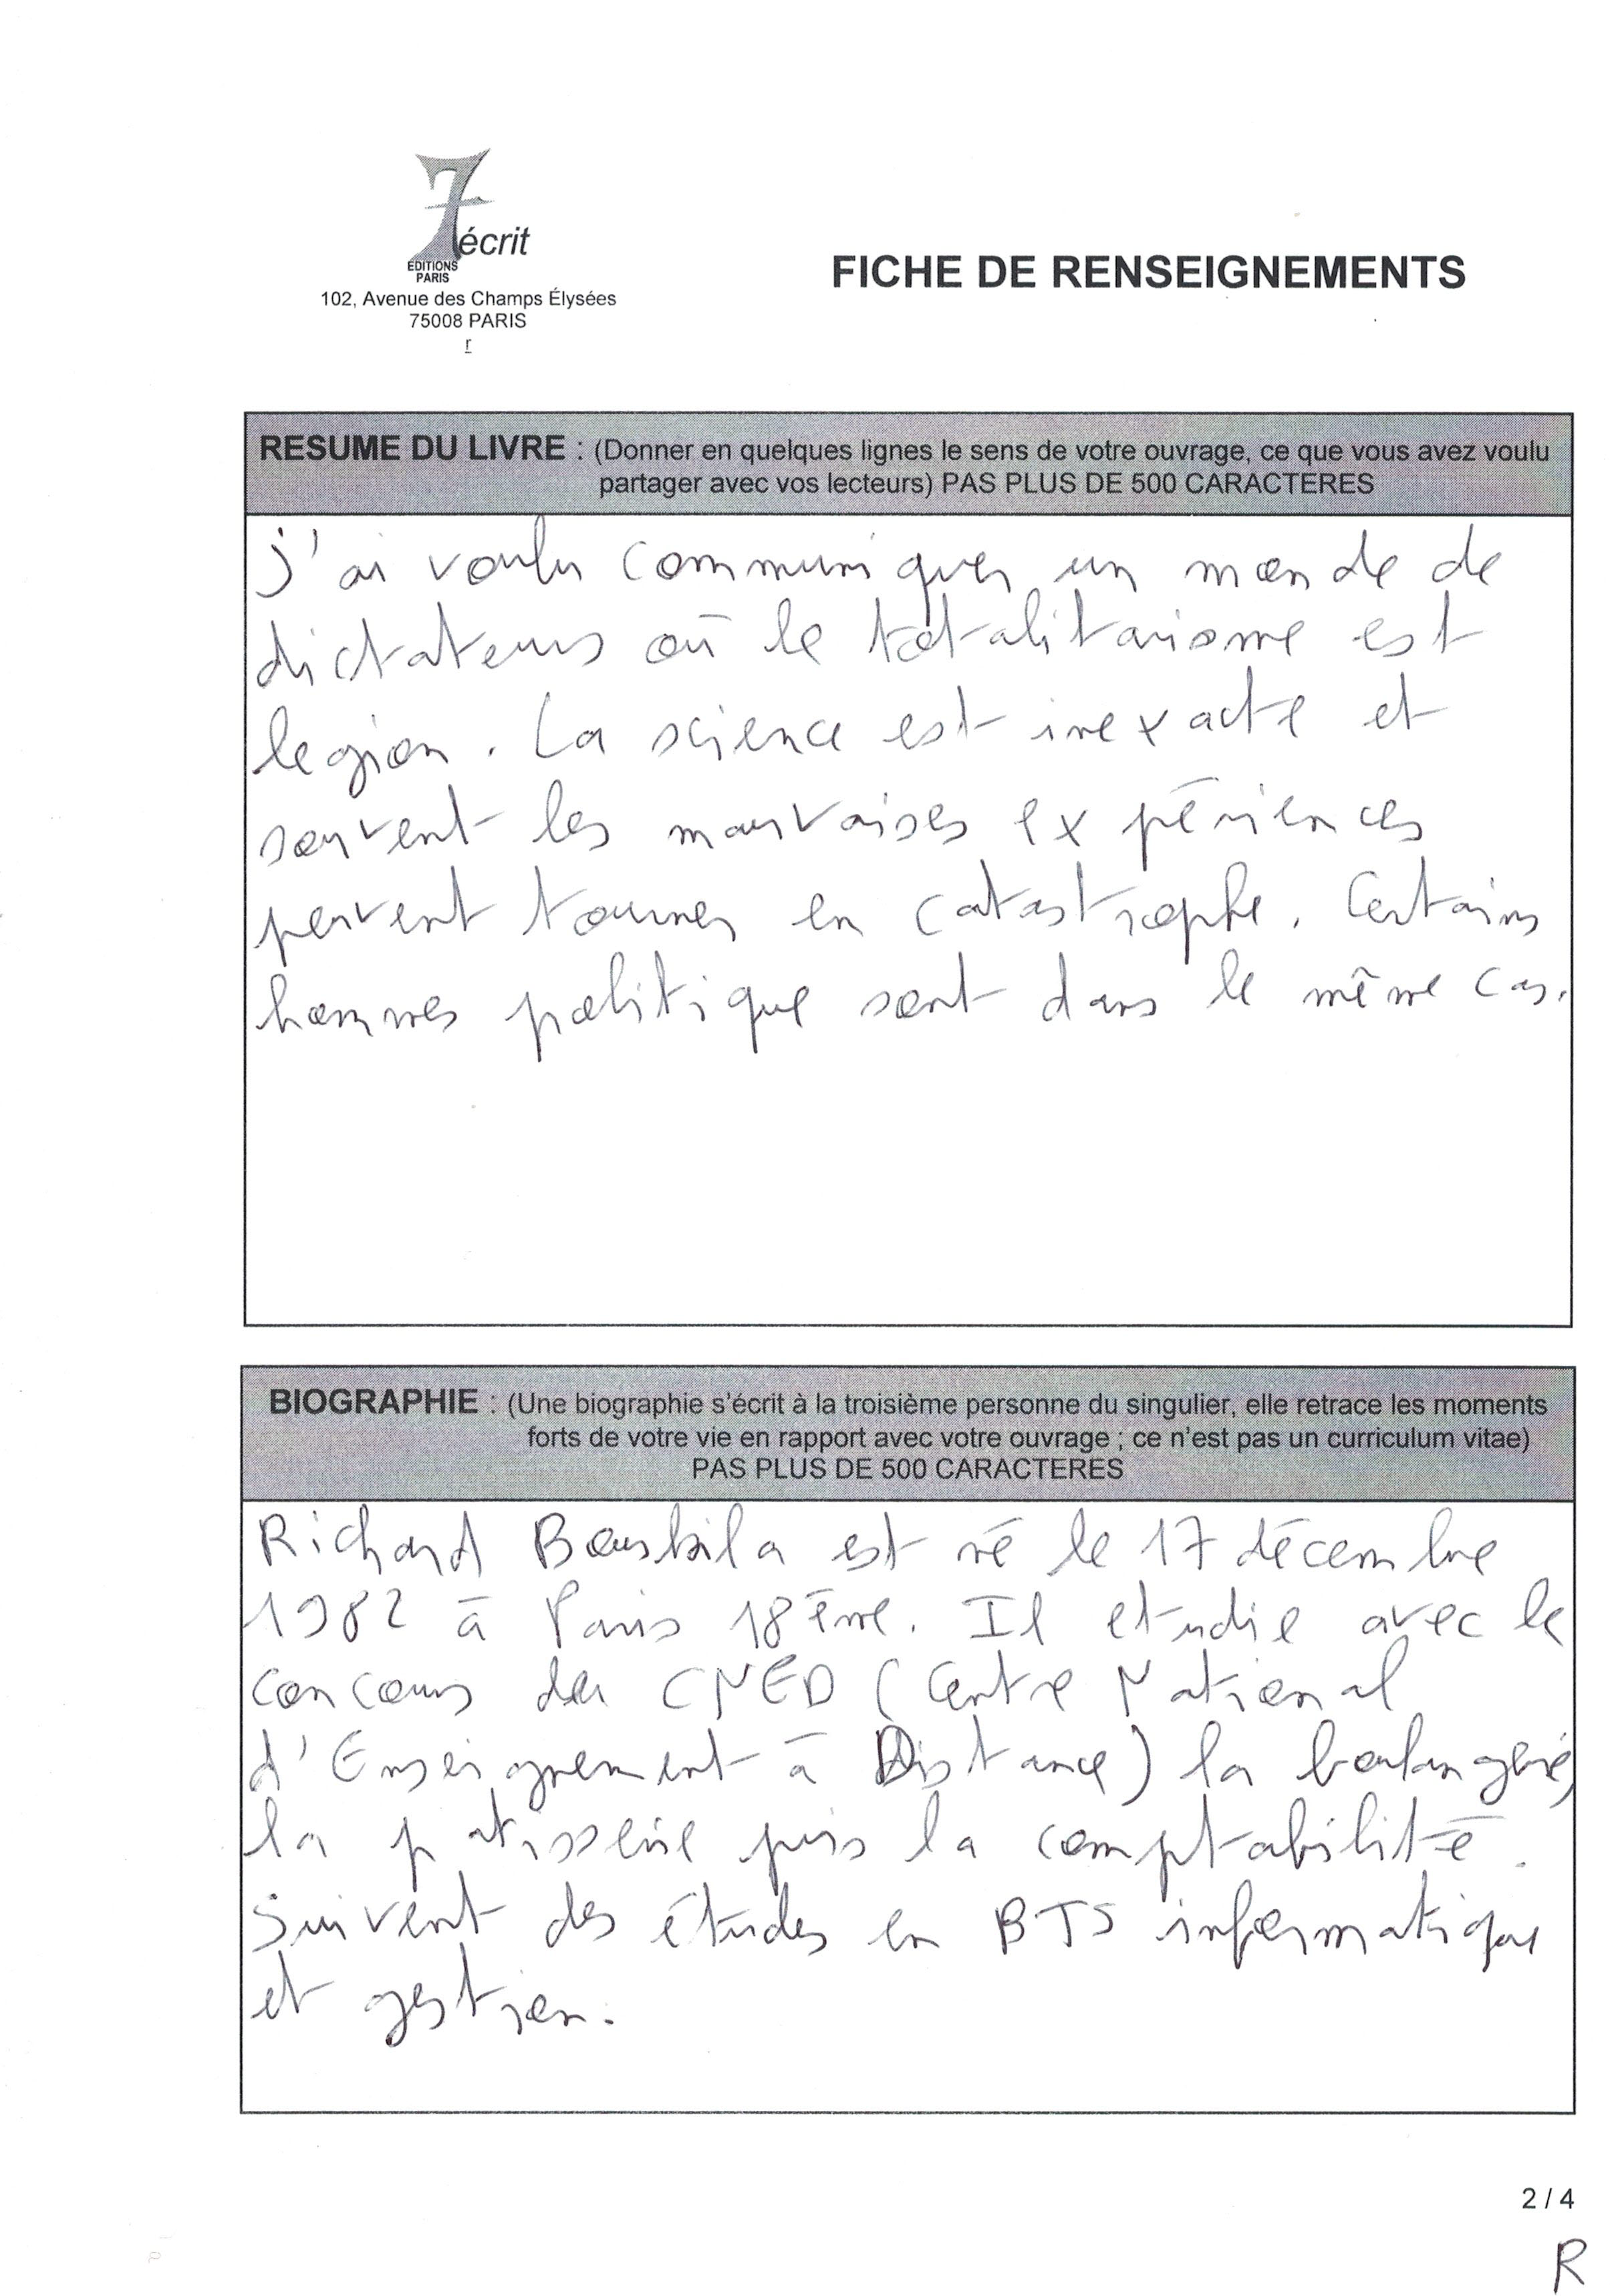 7écrit
EDITIONS
PARIS
102, Avenue des Champs Élysées
75008 PARIS
r
FICHE DE RENSEIGNEMENTS
RESUME DU LIVRE : (Donner en quelques lignes le sens de votre ouvrage, ce que vous avez voulu
partager avec vos lecteurs) PAS PLUS DE 500 CARACTERES
J'ai voulu communiquer un monde de
dictateurs où le totalitarisme est
legion. La science est inexacte et
souvent les mauvaises expériences
peuvent tourner en catastrophe. Certains
hommes politique sont dans le même cas.
BIOGRAPHIE : (Une biographie s'écrit à la troisième personne du singulier, elle retrace les moments
forts de votre vie en rapport avec votre ouvrage ; ce n'est pas un curriculum vitae)
PAS PLUS DE 500 CARACTERES
Richard est né le 17 décembre
1982 à Paris 18ème. Il etudie avec le
concours du CNED (Centre National
d'Enseignement à Distance) la boulangerie,
la patisserie puis la comptabilité.
Suivent des études en BTS informatique
et gestion.
2 / 4
R